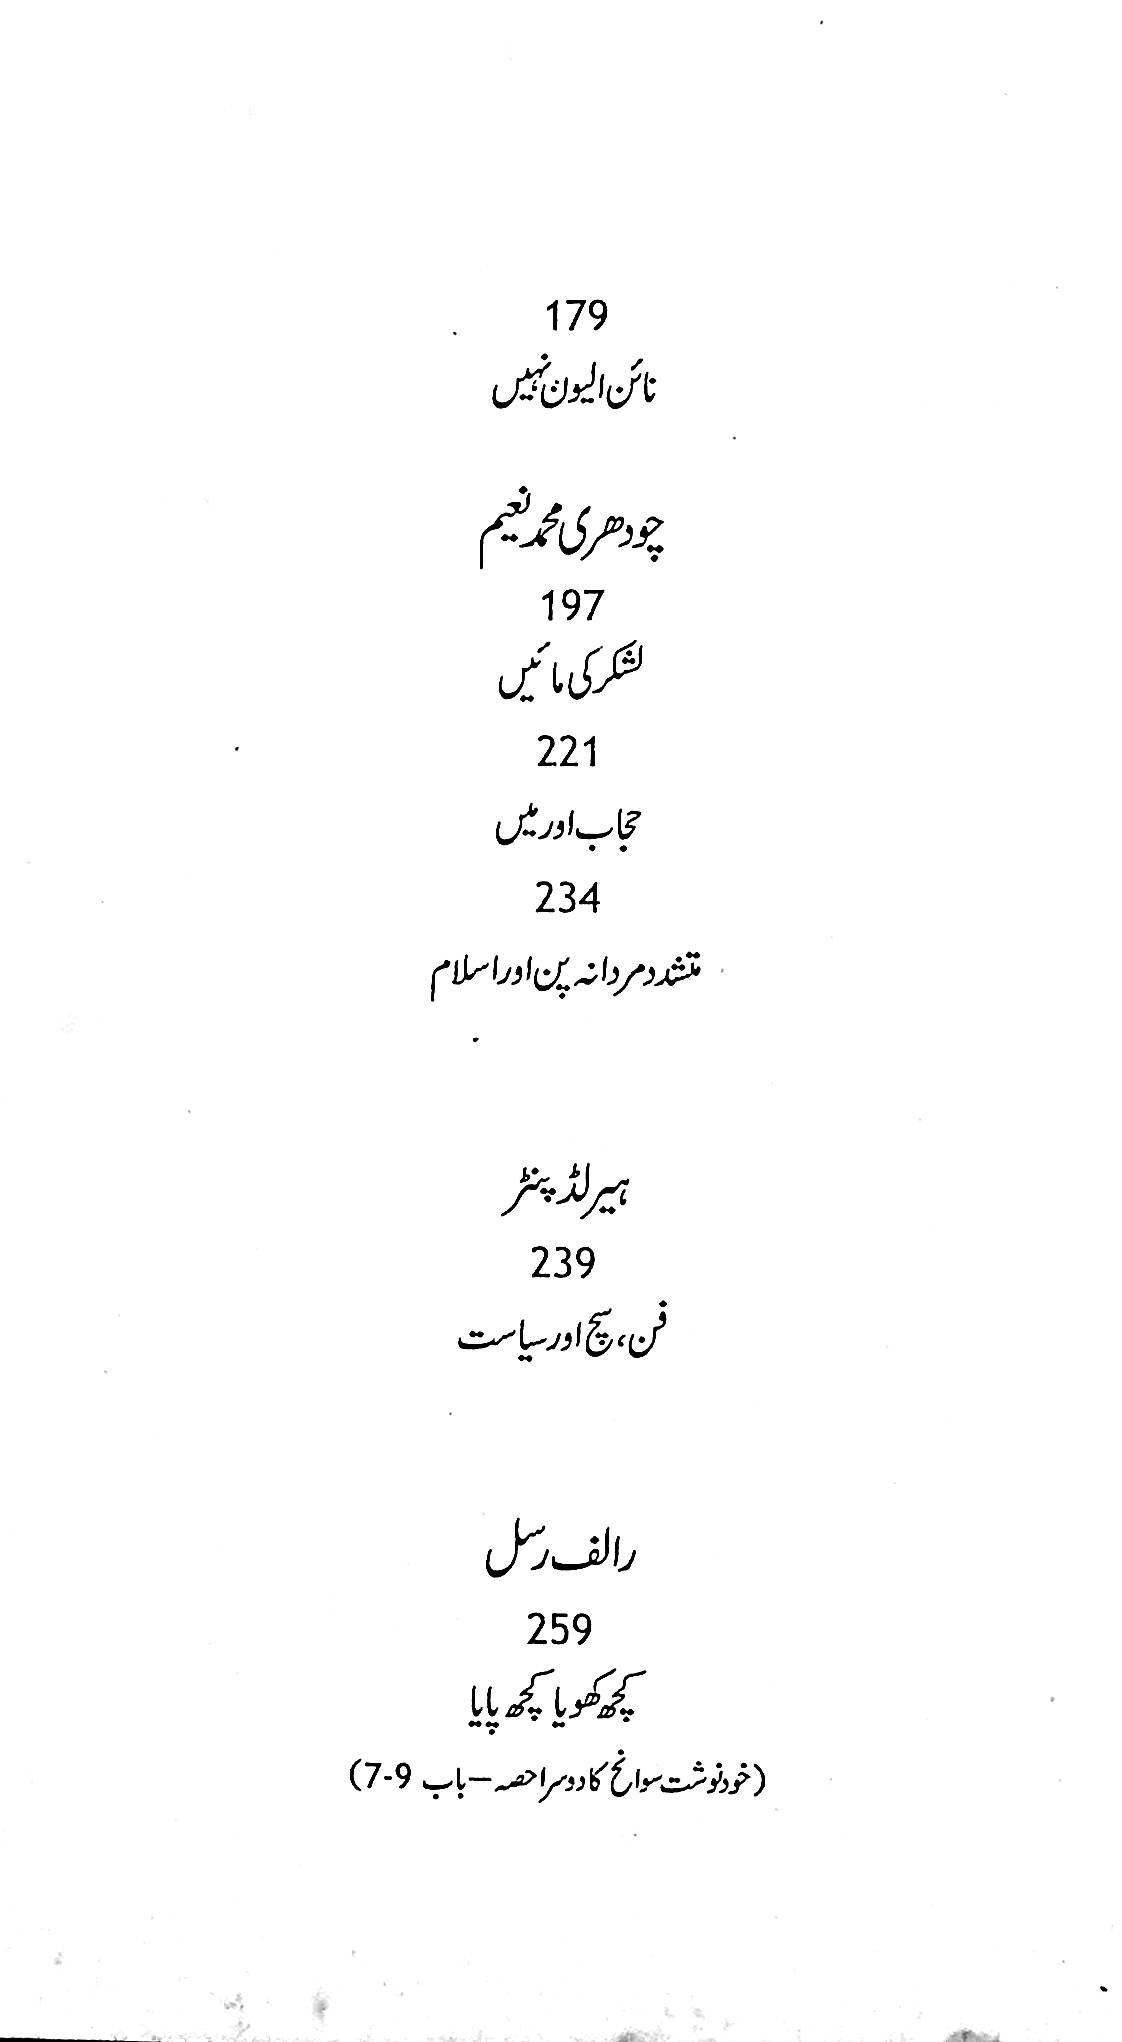 179
نائن الیون نہیں
چودھری محمد نعیم
197
لشکر کی مائیں
221
حجاب اور میں
234
متشدد مردانہ پن اور اسلام
ہیرلڈ پنٹر
239
فن، سچ اور سیاست
رالف رسل
259
کچھ کھویا کچھ پایا
(خودنوشت سوانح کا دوسرا حصہ – باب 9-7)